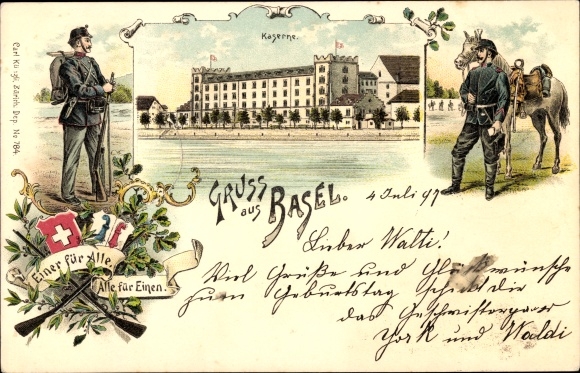 Kaserne.
Carl Künzli, Zürich, Dep. No 784.
GRUSS
aus
BASEL.
Einer für Alle,
Alle für Einen.
4 Juli 97
Lieber Walti!
Viel Grüße und Glückwünsche
zum Geburtstag
das Geschwisterpaar
York und Waldi